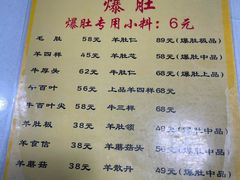 爆肚
爆肚专用小料：6元
毛肚 58元 羊肚仁 89元(爆肚极品)
羊四样 45元 羊肚芯 58元(爆肚中品)
牛厚头 62元 牛肚仁 68元(爆肚上品)
牛百叶 56元 上品羊四样 68元
牛百叶尖 58元 牛三样 68元
羊肚板 38元 羊肚领 49元(爆肚中品)
羊食信 38元 羊蘑菇头 56元(爆肚中品)
羊蘑菇 38元 羊散丹 49元(爆肚中品)